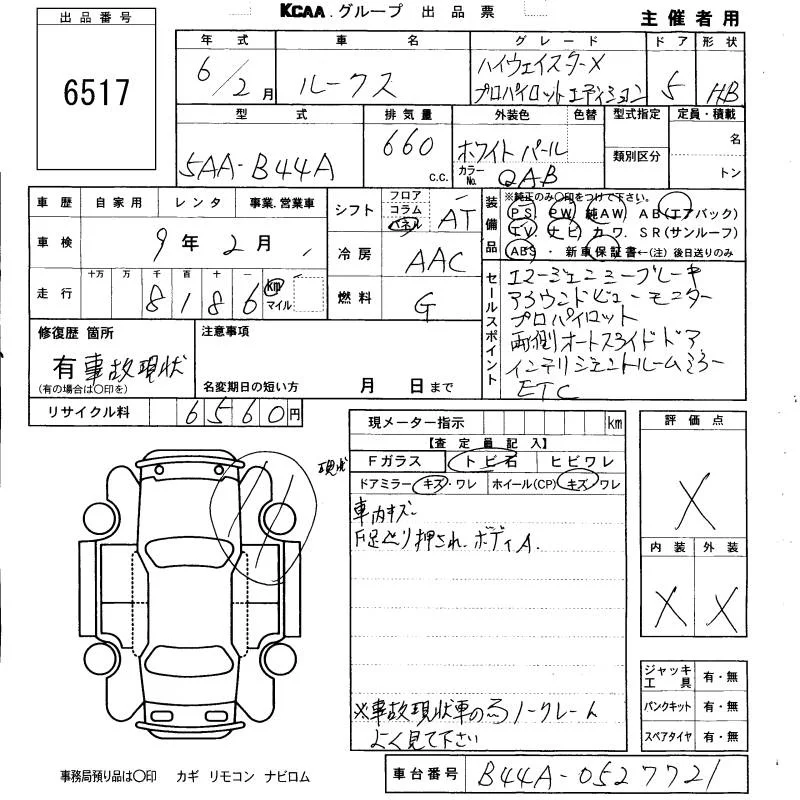 KCAA.グループ 出品票
主催者用
出品番号
6517
年式 車名 グレード ドア 形状
6/2月 ルークス ハイウェイスターX プロパイロットエディション 5 HB
型式 排気量 外装色 色替 型式指定 定員・積載
5AA-B44A 660 c.c. ホワイトパール 名
カラーNo. QAB 類別区分 トン
車歴 自家用 レンタ 事業.営業車
車検 9年2月
走行 十万 万 千 百 十 一 km マイル
8186
シフト フロア コラム パネル AT
冷房 AAC
燃料 G
装備品 ※純正のみ○印をつけて下さい。
PS PW 純AW AB(エアバック)
TV ナビ カワ. SR(サンルーフ)
ABS ・ 新車保証書←(注)後日送りのみ
セールスポイント
エマージェンシーブレーキ
アラウンドビューモニター
プロパイロット
両側オートスライドドア
インテリジェントルームミラー
ETC
修復歴 箇所
有 事故現状
(有の場合は○印を)
注意事項
名変期日の短い方 月 日まで
リサイクル料 6560円
現状
現メーター指示 km
【査定員記入】
Fガラス トビ石 ヒビワレ
ドアミラー キズ・ワレ ホイール(CP) キズ・ワレ
車内キズ
押され.ボディA.
※事故現状車の為ノークレーム
よく見て下さい
評価点
X
内装 外装
X X
ジャッキ工具 有・無
パンクキット 有・無
スペアタイヤ 有・無
事務局預り品は○印 カギ リモコン ナビロム
車台番号 B44A-0527721